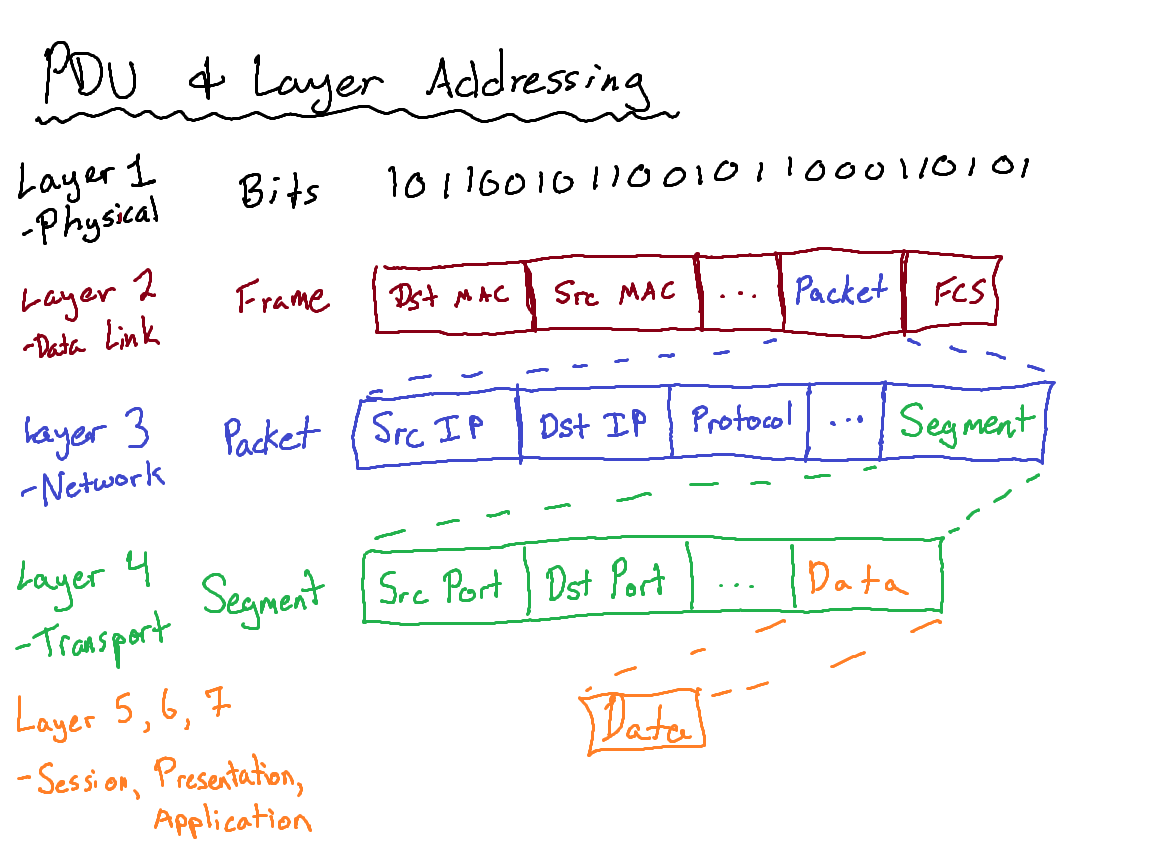 PDU & Layer Addressing
Layer 1
-Physical
Bits
1011001011001011000110101
Layer 2
-Data Link
Frame
Dst MAC Src MAC ... Packet FCS
Layer 3
-Network
Packet
Src IP Dst IP Protocol ... Segment
Layer 4
-Transport
Segment
Src Port Dst Port ... Data
Layer 5, 6, 7
-Session, Presentation,
Application
Data